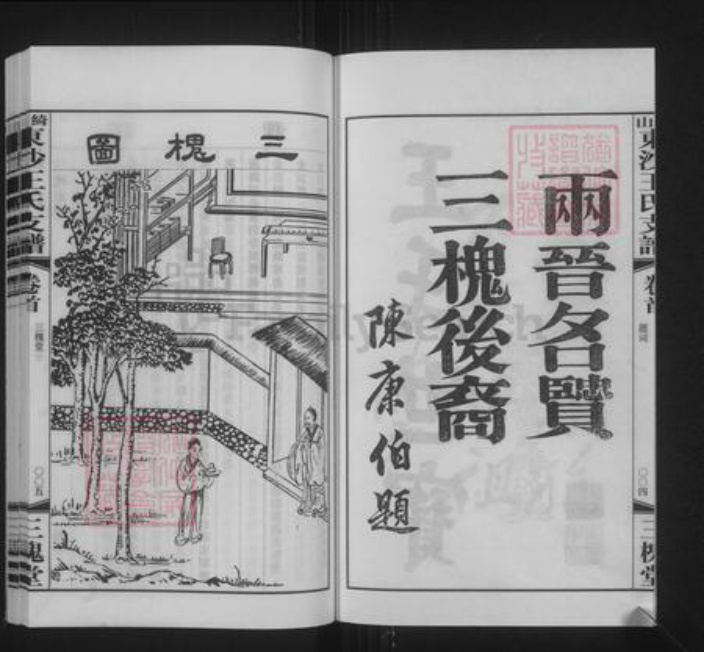 兩晉名賢
三槐後裔
陳康伯題
山東沙王氏支譜
卷首
〇〇四
三槐堂
三槐圖
綺東沙王氏支譜
卷首
三槐堂
〇〇五
三槐堂